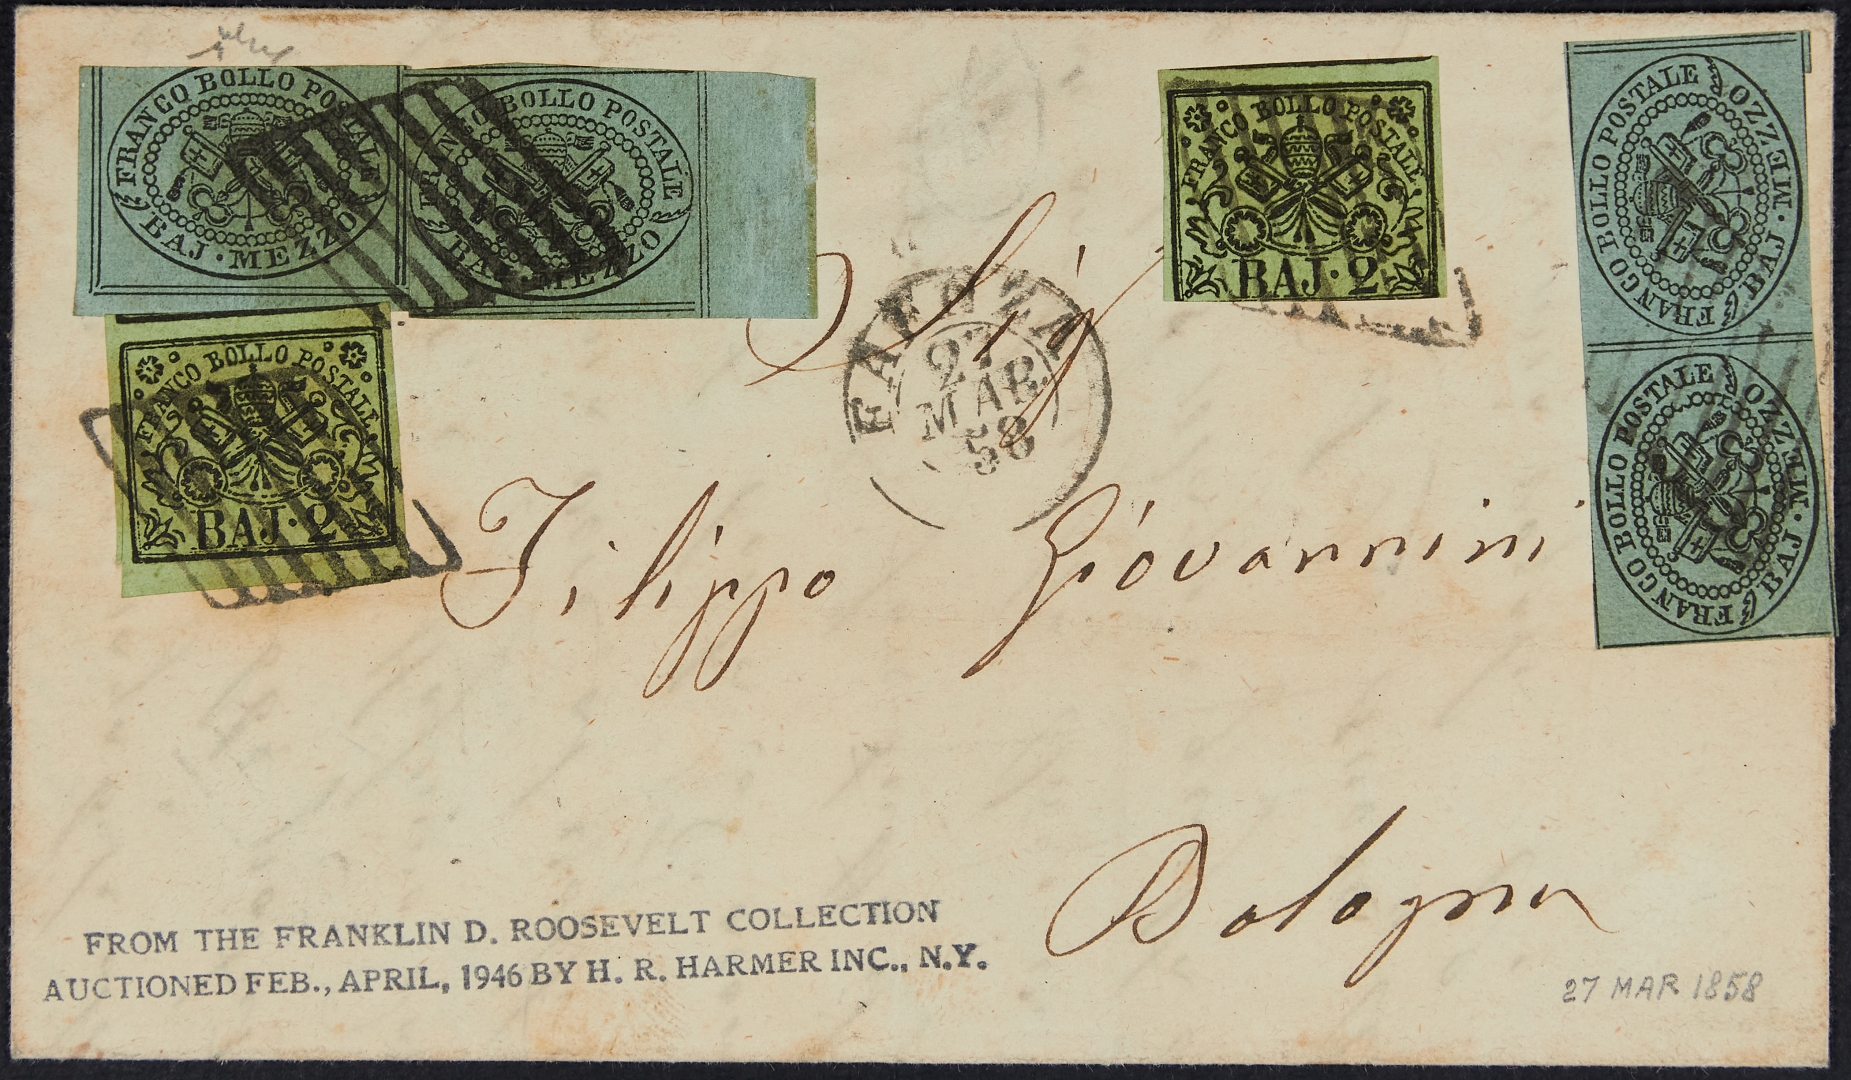 FRANCO BOLLO POSTALE
BAJ · MEZZO
FRANCO BOLLO POSTALE
BAJ · MEZZO
FRANCO BOLLO POSTALE
BAJ · 2
FRANCO BOLLO POSTALE
BAJ · MEZZO
FRANCO BOLLO POSTALE
BAJ · MEZZO
FRANCO BOLLO POSTALE
BAJ · 2
FAENZA
27
MAR
58
Sig
Filippo Giovannini
Bologna
FROM THE FRANKLIN D. ROOSEVELT COLLECTION
AUCTIONED FEB., APRIL, 1946 BY H. R. HARMER INC., N.Y.
27 MAR 1858